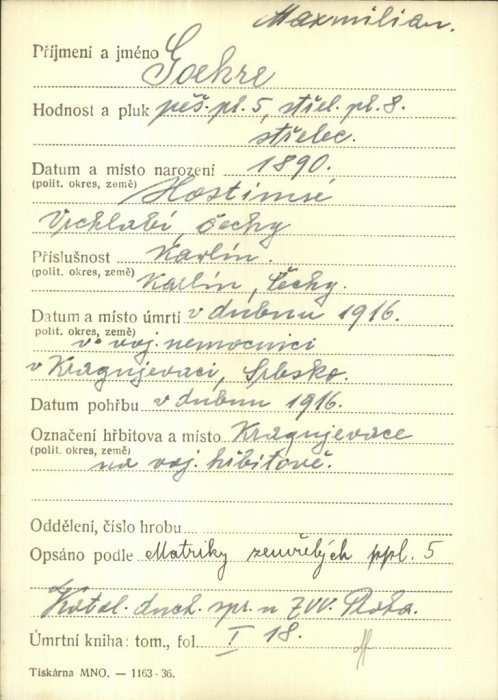 Maxmilian.
Příjmení a jméno Goehre
Hodnost a pluk pěš. pl. 5, střel. pl. 8.
střelec.
Datum a místo narození 1890.
(polit. okres, země) Hostinné
Vrchlabí, Čechy
Příslušnost Karlín.
(polit. okres, země) Karlín, Čechy.
Datum a místo úmrtí v dubnu 1916.
polit. okres, země) v voj. nemocnici
v Kragujevaci, Srbsko.
Datum pohřbu v dubnu 1916.
Označení hřbitova a místo Kragujevace
(polit. okres, země) na voj. hřbitově.
Oddělení, číslo hrobu
Opsáno podle Matriky zemřelých ppl. 5
Katol. duch. spr. u ZVV. Praha.
Úmrtní kniha: tom., fol. I 18.
Tiskárna MNO. — 1163-36.